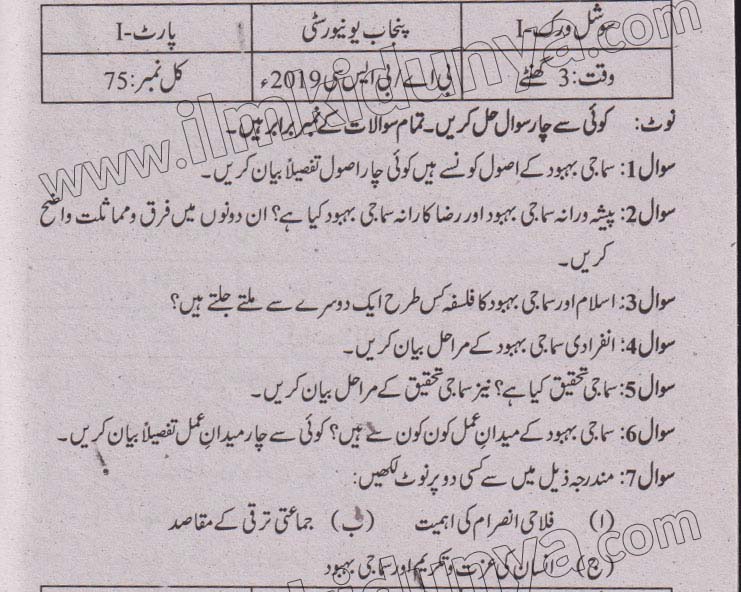 سوشل ورک-I پنجاب یونیورسٹی پارٹ-I
وقت: 3 گھنٹے بی اے/بی ایس سی 2019ء کل نمبر: 75
نوٹ: کوئی سے چار سوال حل کریں۔ تمام سوالات کے نمبر برابر ہیں۔
سوال 1: سماجی بہبود کے اصول کونسے ہیں کوئی چار اصول تفصیلاً بیان کریں۔
سوال 2: پیشہ ورانہ سماجی بہبود اور رضا کارانہ سماجی بہبود کیا ہے؟ ان دونوں میں فرق و مماثلت واضح
کریں۔
سوال 3: اسلام اور سماجی بہبود کا فلسفہ کس طرح ایک دوسرے سے ملتے جلتے ہیں؟
سوال 4: انفرادی سماجی بہبود کے مراحل بیان کریں۔
سوال 5: سماجی تحقیق کیا ہے؟ نیز سماجی تحقیق کے مراحل بیان کریں۔
سوال 6: سماجی بہبود کے میدانِ عمل کون کون سے ہیں؟ کوئی سے چار میدانِ عمل تفصیلاً بیان کریں۔
سوال 7: مندرجہ ذیل میں سے کسی دو پر نوٹ لکھیں:
(ا) فلاحی انصرام کی اہمیت (ب) جماعتی ترقی کے مقاصد
(ج) انسان کی عزت و تکریم اور سماجی بہبود
www.ilmkidunya.com